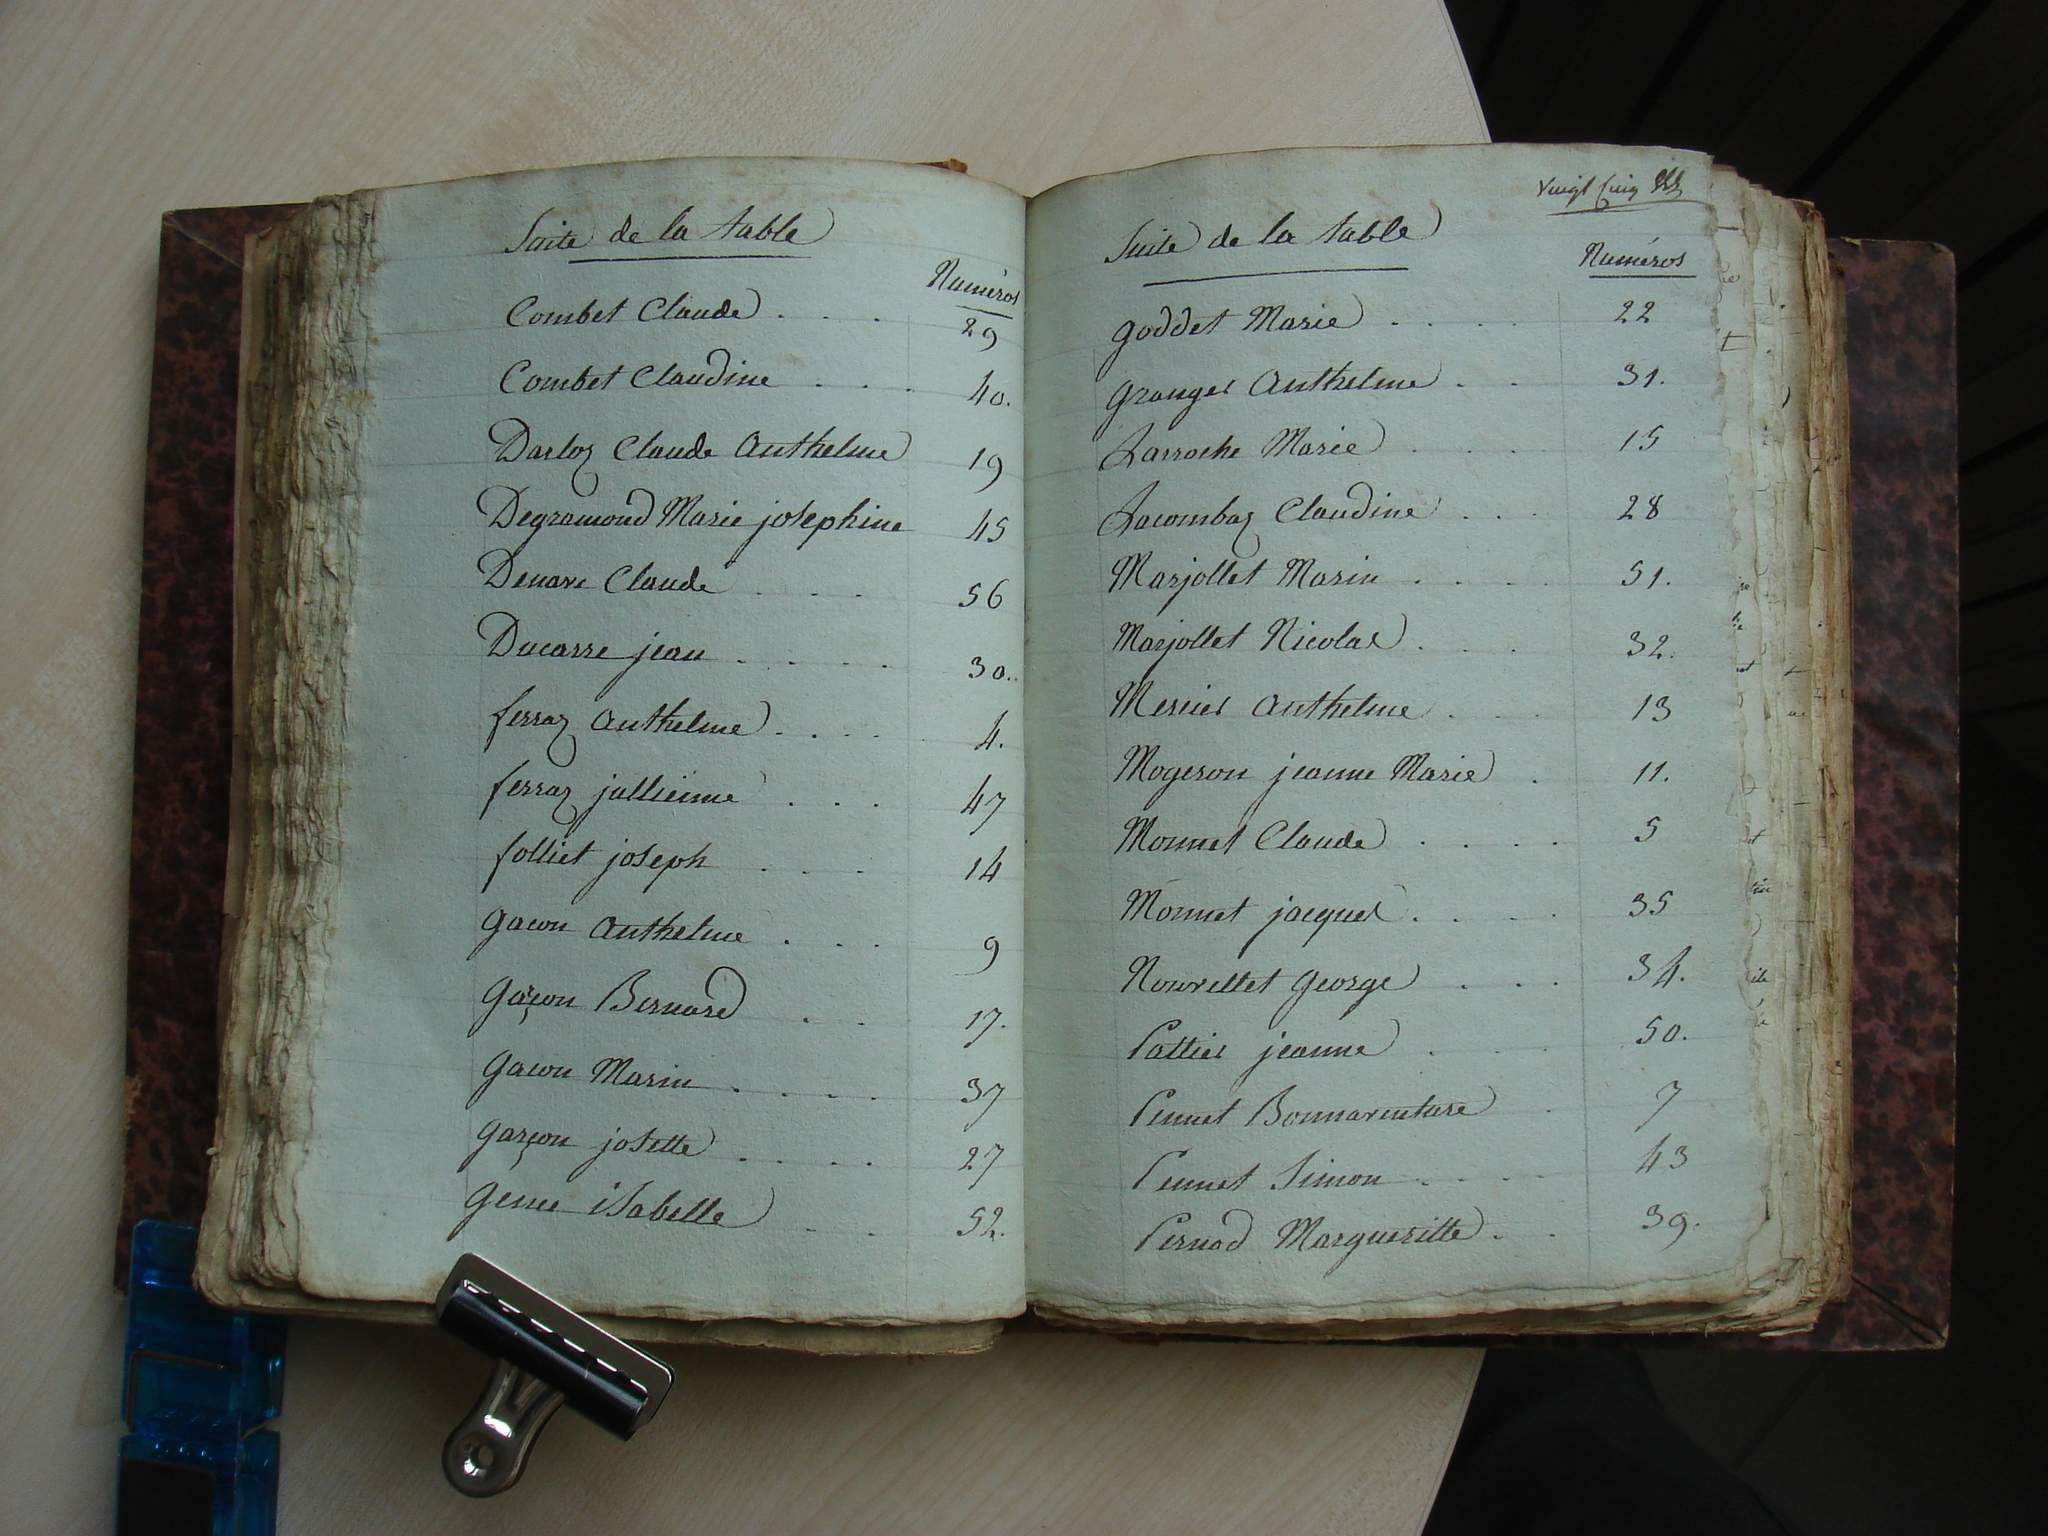 Suite de la table
Numéros
Combet Claude . . . 29
Combet Claudine . . . 40.
Darloz Claude Anthelme 19
Degramond Marie josephine 45
Denave Claude . . . 56
Ducarre jean . . . . 30.
ferraz Anthelme . . . . 4.
ferraz jullienne . . . 47
folliet joseph . . . 14
gacon Anthelme . . . 9
garçon Bernard . . 17.
gacon Marin . . . . 37
garçon josette . . . . 27
genee isabelle . . 52.
vingt cinq
Suite de la table
Numéros
goddet Marie . . . . 22
granger Anthelme . . 31.
Larroche Marie . . . 15
Lacombaz Claudine . . . 28
Marjollet Marin . . . . 51.
Marjollet Nicolas . . . 32.
Mercier Anthelme . . . 13
Mogeron jeanne Marie . 11.
Monnet Claude . . . . 5
Monnet jacques . . . . 35
Nouvellet george . . . 34.
Pattier jeanne . . . 50.
Pennet Bonnaventure . 7
Pennet Simon . . . . 43
Pernod Margueritte . . 39.